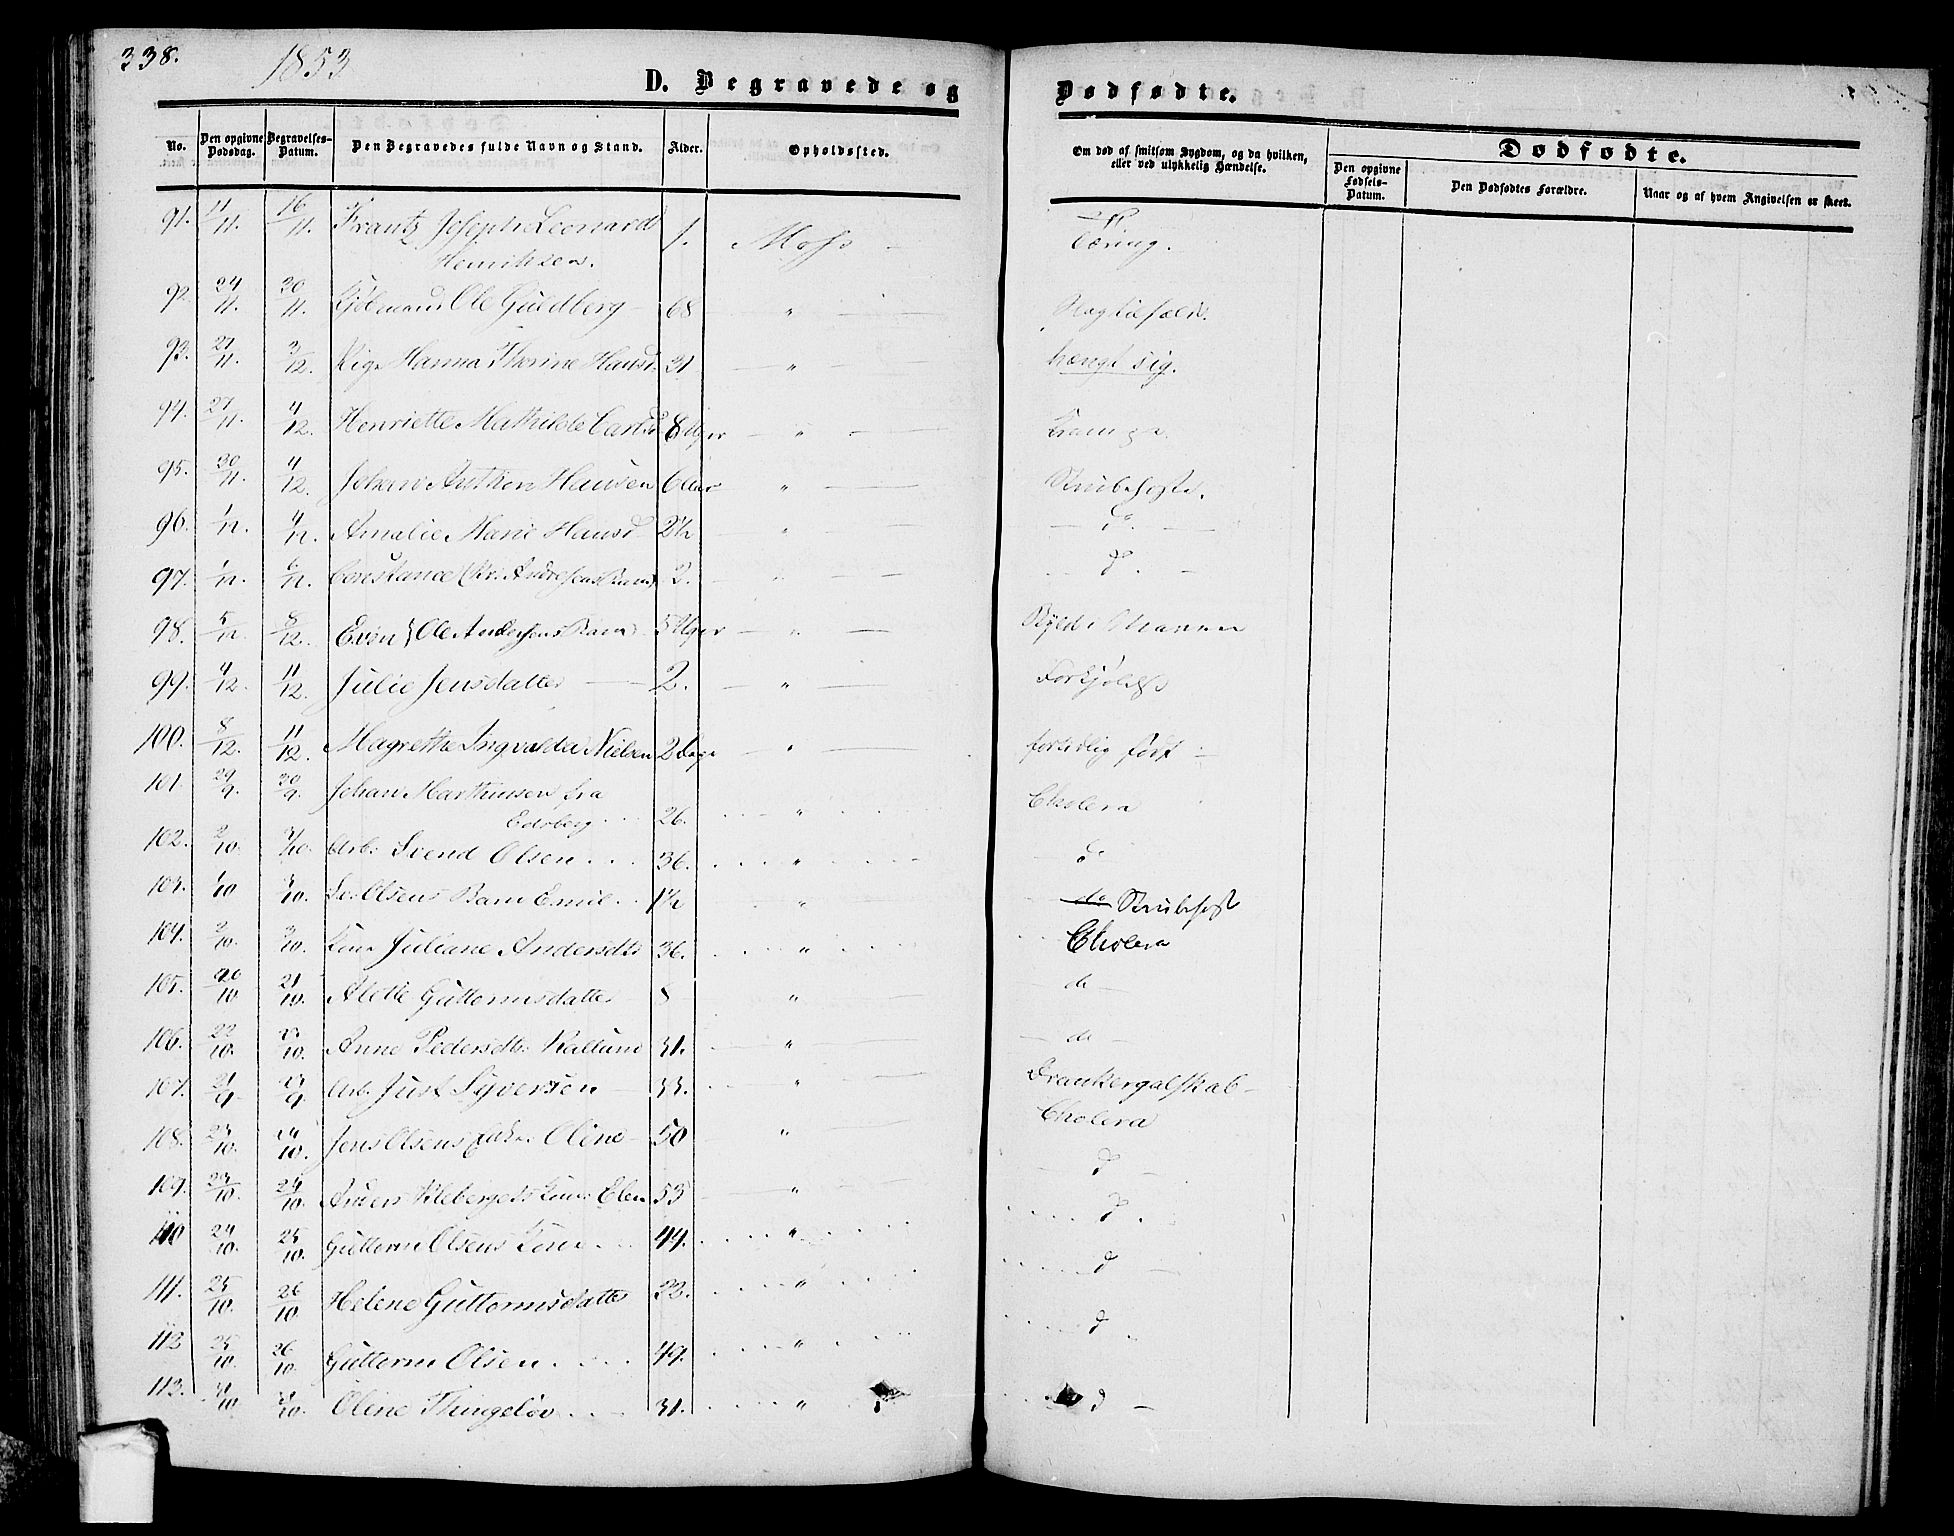 338. 1853
D. Begravede og Dødfødte.
No. Den opgivne Dødsdag. Begravelses-Datum. Den Begravedes fulde Navn og Stand. Alder. Opholdssted. Om død af smitsom Sygdom, og da hvilken, eller ved ulykkelig Hændelse. Dødfødte.
Den opgivne Fødsels-Datum. Den Dødfødtes Forældre. Naar og af hvem Angivelsen er skeet.
91. 11/11. 16/11. Frantz Joseph Leonard 1. Moss - Tæring.
Henriksen.
92. 24/11. 30/11. Ole Guldberg 68 — " — Slagtilfælde.
93. 27/11. 3/12. Pige Hanna Thorine Hansd. 31. — " — hængt sig.
94. 27/11. 4/12. Henriette Mathilde Carlsd 8 Uger — " — Krampe.
95. 30/11. 4/12. Johan Anthon Hansen 6 Aar " — Strubehoste.
96. 1/12. 4/12. Amalie Marie Hansd 2½ " — do. —
97. 1/12. 6/12. Constance (Kr. Andersens Barn) 2. — " — do. —
98. 5/12. 8/12. Even (Ole Andersens Barn) 5 Uger — " — Byld i Maven
99. 4/12. 11/12. Julie Jensdatter — 2. — " — Forkjølelse
100. 8/12. 11/12. Magrethe Ingvalda Nielsen 2 Dage — " — fortidlig født —
101. 29/9. 30/9. Johan Marthinsen fra
Edsberg ... 26. ... " ... Cholera
102. 2/10. 3/10. Arb. Svend Olsen ... 36. ... " ... do
103. 1/10 3/10. Olsens Barn Emil .. 1½ .. " do Strubehoste
104. 2/10. 3/10. Kone Juliane Andersdtr 36. .. " .. Cholera
105. 20/10 21/10. Alette Guttormsdatter 8 " do —
106. 22/10. 23/10. Anne Pedersdtr. 31. .. " — do —
107. 21/9. 23/9. Arb. Just Syversen — 33. .. " Drankergalskab —
108. 23/10. 24/10. Jens Olsens Enke Oline 50 " Cholera
109. 23/10. 24/10. Anders Klebergets Kone Elen 53 — " — do —
110 24/10. 25/10. Guttorm Olsens Kone .. 44. .... " .... do.
111. 25/10. 26/10. Helene Guttormsdatter 22. .... " .... do —
112 25/10. 26/10. Guttorm Olsen .... 49. .... " .... do ..
113. 31/10. 31/10. Oline Thingeløv ... 31. .... " do —